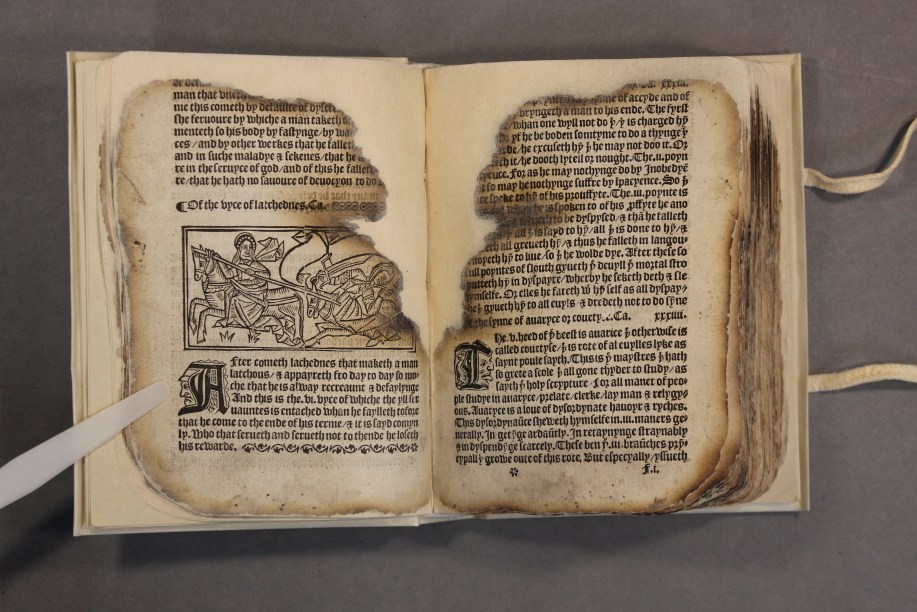 man that
me this cometh by defaulte of
the feruoure by whiche a man taketh
menteth so his body by fastynge/by
ces/and by other werkes that he
and in suche maladye ⁊ sekenes/that he
re in the seruyce of god/and of this he
re/that he hath no sauoure of deuocyon to do
¶Of the vyce of latchednes.Ca.
After cometh lachednes that maketh a man
latchous/⁊ appayreth fro day to day so mo-
che that he is alway recreaunt ⁊ defaylynge
And this is the .vi. vyce of whiche the yll ser
uauntes is entached whan he faylleth tofore
that he come to the ende of his terme/⁊ it is sayd comyn
ly. Who that serueth and serueth not to thende he loseth
his rewarde.
xxxiii.
synne of accyde and of
bryngeth a man to his ende. The fyrst
whan one wyll not do þͭ þͭ is charged hȳ
yf he be boden somtyme to do a thynge þͭ
he excuseth hȳ þͭ he may not doo it. Or
it/he dooth lyteil or nought. The.ii.poyn
For as he may nothynge do by Inobedyē
so may he nothynge suffre by īpacyence. So þͭ
speke to hȳ of his prouffyte. The.iii.poynte is
whan he is spoken to of his proffyte he ano
to be dyspysed/⁊ thā he falleth
all þͭ is sayd to hȳ/all þͭ is done to hȳ/⁊
all greueth hȳ/⁊ thus he falleth in langou-
hȳ to liue/so þͭ he wolde dye. After these so
full poyntes of slouth gyueth þͤ deuyll þͤ mortal stro
putteth hȳ in dyspayre/wherby he seketh deth ⁊ sle
hymselfe. Or elles he fareth wͭ hȳ self as all dyspay/
gyueth hȳ to all euyls ⁊ dredeth not to do sȳne
the synne of auaryce or couetyse.Ca. xxxiiii.
The.v.heed of þͤ beest is auarice þͭ otherwise is
called couetyse/þͭ is rote of al euylles lyke as
saynt poule sayth. This is þͤ maystres þͭ hath
so grete a scole þͭ all gone thyder to study/as
sayth þͤ holy scrypture. For all maner of peo-
ple studye in auaryce/prelate/clerke/lay man ⁊ relygy-
ous. Auaryce is a loue of dysordynate hauoyr ⁊ ryches.
This dysordynaūce sheweth hymselfe in.iii.maners ge-
nerally. In getȳge ardaūtly. In retaynynge straynably
⁊ in dyspendȳge scarcely. These ben þͤ.iii.braūches prȳ-
cypally growe oute of this rote. But especyally/yssueth
F.i.